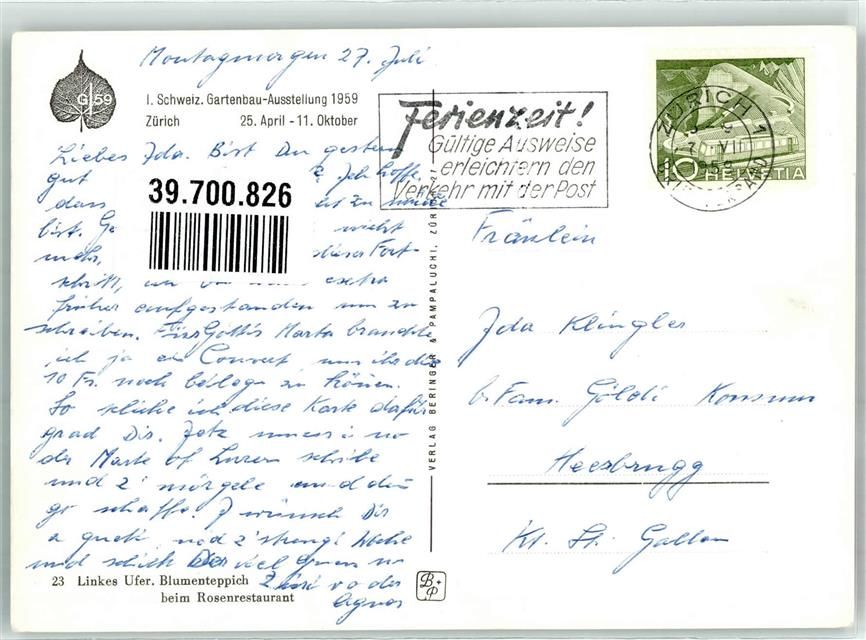 Montagmorgen 27. Juli
G 59
I. Schweiz. Gartenbau-Ausstellung 1959
Zürich 25. April - 11. Oktober
Liebes Ida. Bist Du gestern
gut Ich hoffe,
dass
bist. nicht
mehr, dieser Fort-
schritt, extra
früher aufgestanden um zu
schreiben. Fürs Gotti's Marta brauchte
ich ja ein Couvert um ihr die
10 Fr. noch beilegen zu können.
So schicke ich diese Karte dafür
grad Dir. Jetz muess i no
der Marte of Luzern schribe
und z' mörgele und dän
go schaffe. I wünsch Dir
a gueti und z'strengi Wuche
und schick Der viel
vo der
Agnes
39.700.826
23 Linkes Ufer. Blumenteppich
beim Rosenrestaurant
VERLAG BERINGER & PAMPALUCHI, ZÜRICH
B+P
Ferienzeit!
Gültige Ausweise
erleichtern den
Verkehr mit der Post
ZÜRICH
1959
10 HELVETIA
Fräulein
Ida Klingler
b. Fam. Göldi Konsum
Heerbrugg
Kt. St. Gallen